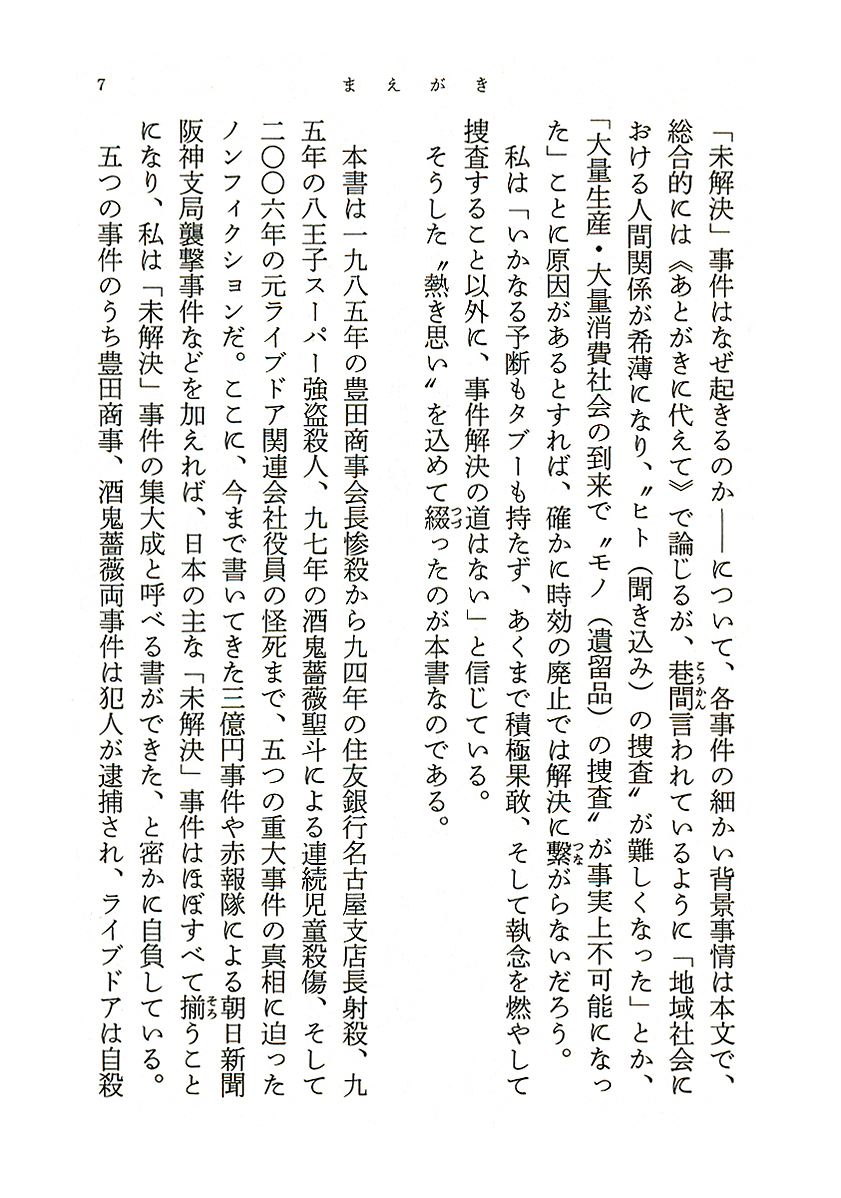 7
まえがき
「未解決」事件はなぜ起きるのか――について、各事件の細かい背景事情は本文で、
総合的には《あとがきに代えて》で論じるが、巷間言われているように「地域社会に
とうかん
おける人間関係が希薄になり、〝ヒト（聞き込み）の捜査〟が難しくなった」とか、
「大量生産・大量消費社会の到来で〝モノ（遺留品）の捜査〟が事実上不可能になっ
た」ことに原因があるとすれば、確かに時効の廃止では解決に繋がらないだろう。
つな
私は「いかなる予断もタブーも持たず、あくまで積極果敢、そして執念を燃やして
捜査すること以外に、事件解決の道はない」と信じている。
そうした〝熱き思い〟を込めて綴ったのが本書なのである。
つづ
本書は一九八五年の豊田商事会長惨殺から九四年の住友銀行名古屋支店長射殺、九
五年の八王子スーパー強盗殺人、九七年の酒鬼薔薇聖斗による連続児童殺傷、そして
二〇〇六年の元ライブドア関連会社役員の怪死まで、五つの重大事件の真相に迫った
ノンフィクションだ。ここに、今まで書いてきた三億円事件や赤報隊による朝日新聞
阪神支局襲撃事件などを加えれば、日本の主な「未解決」事件はほぼすべて揃うこと
そろ
になり、私は「未解決」事件の集大成と呼べる書ができた、と密かに自負している。
五つの事件のうち豊田商事、酒鬼薔薇両事件は犯人が逮捕され、ライブドアは自殺